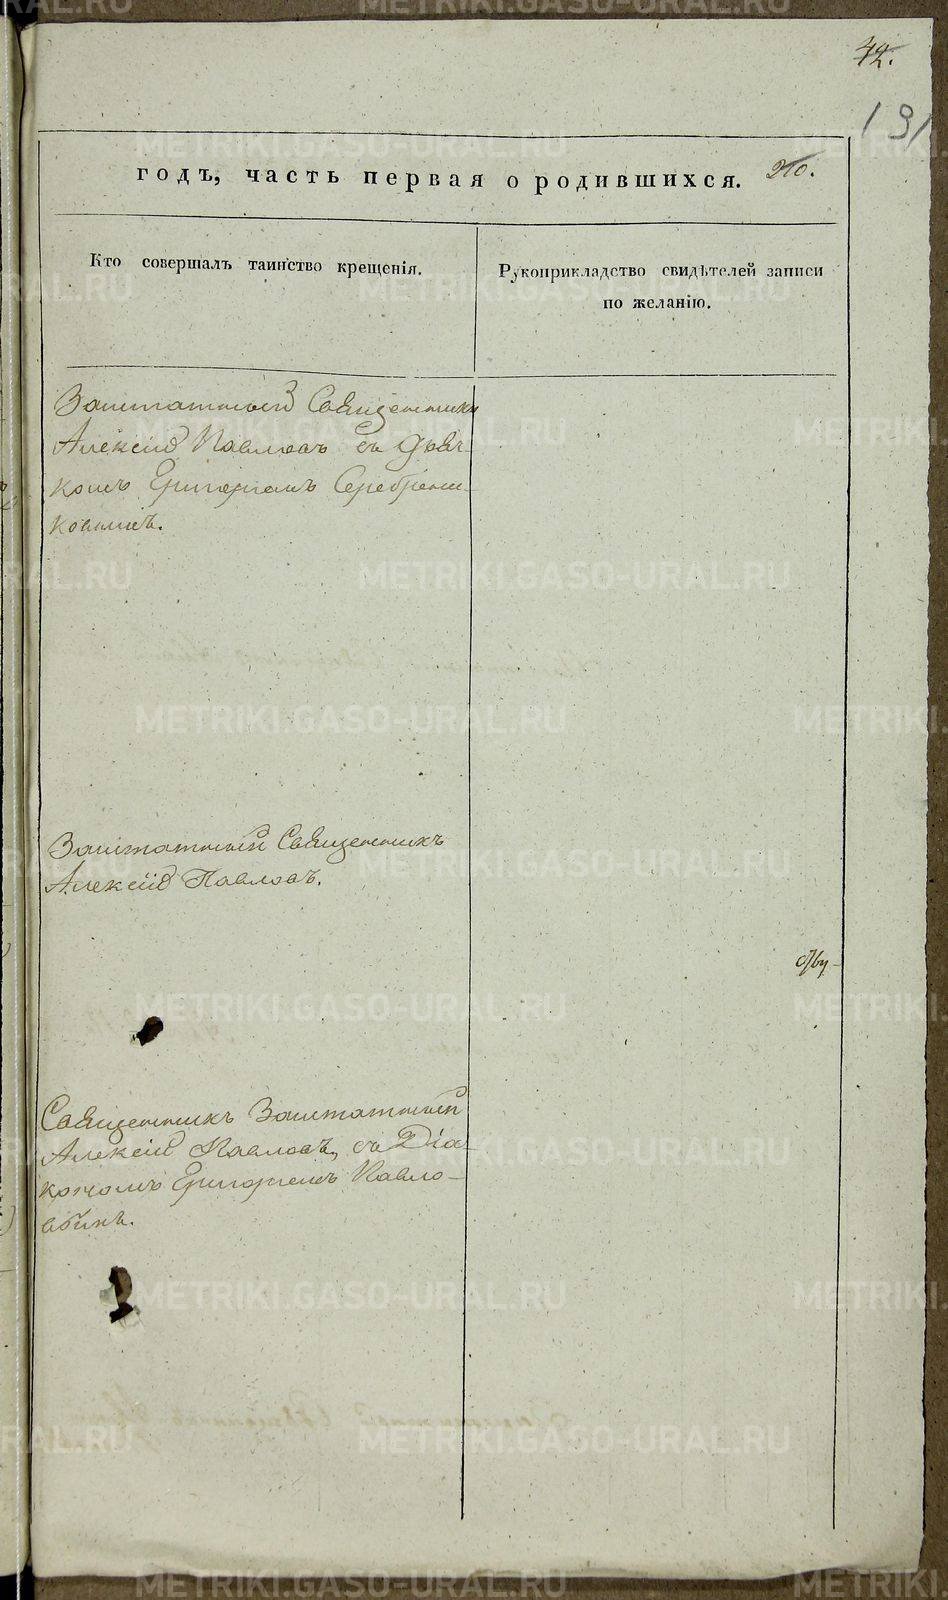 42.
191
годъ, часть первая о родившихся.
Кто совершалъ таинство крещенія.
Рукоприкладство свидѣтелей записи
по желанію.
Заштатный Священникъ
Алексій Павловъ съ Дьяч-
комъ Григоріемъ Серебрени-
ковымъ.
Заштатный Священникъ
Алексій Павловъ.
Священникъ Заштатный
Алексій Павловъ, съ Діа-
кономъ Григоріемъ Павло-
вымъ.
METRIKI.GASO-URAL.RU